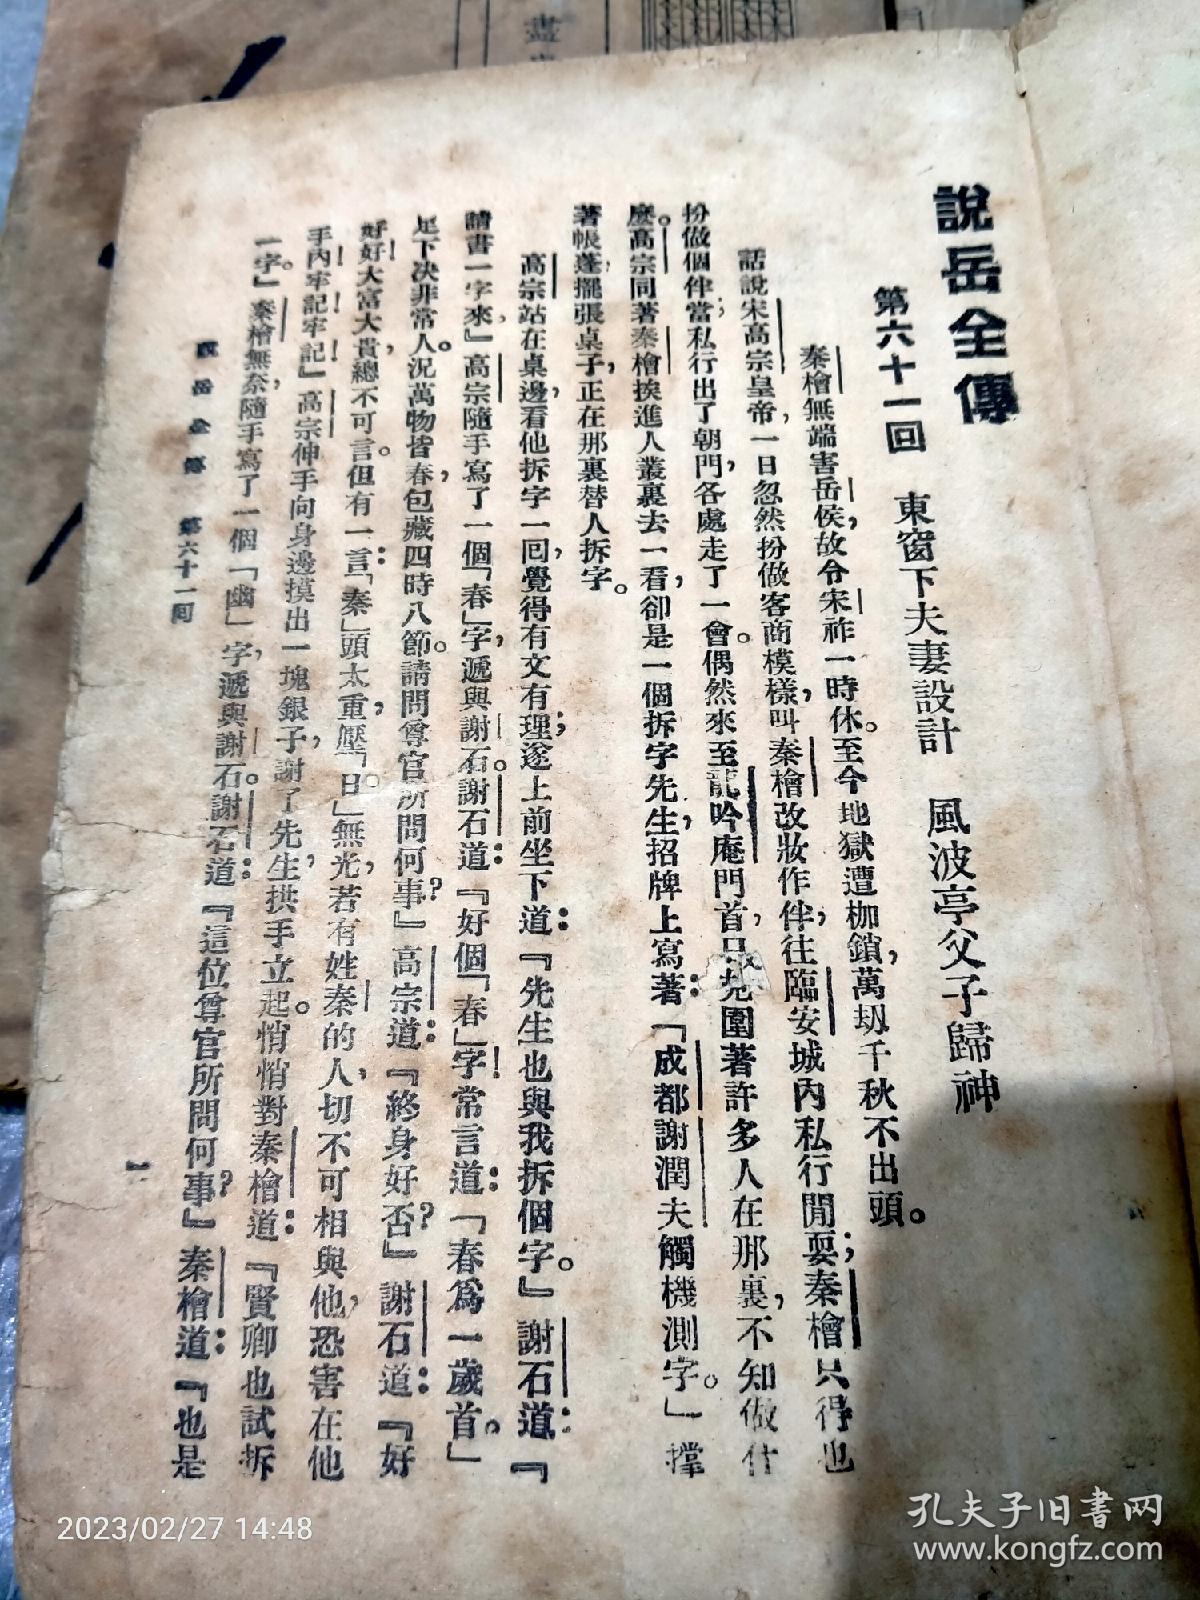 說岳全傳
第六十一回　東窗下夫妻設計　風波亭父子歸神
秦檜無端害岳侯，故令宋祚一時休。至今地獄遭枷鎖，萬刼千秋不出頭。
話說宋高宗皇帝，一日忽然扮做客商模樣，叫秦檜改妝作伴，往臨安城內私行閒耍；秦檜只得也
扮做個伴當，私行出了朝門，各處走了一會。偶然來至龍吟庵門首，只見圍著許多人在那裏，不知做什
麼。高宗同著秦檜挨進人叢裏去一看，卻是一個拆字先生，招牌上寫著：「成都謝潤夫觸機測字。」撑
著帳蓬，擺張桌子，正在那裏替人拆字。
高宗站在桌邊，看他拆字一回，覺得有文有理；遂上前坐下道：『先生也與我拆個字。』謝石道：『
請書一字來，』高宗隨手寫了一個「春」字，遞與謝石。謝石道：『好個「春」字！常言道：「春爲一歲首。」
足下決非常人。況萬物皆春，包藏四時八節。請問尊官所問何事？』高宗道：『終身好否？』謝石道：『好
好！好大富大貴，總不可言。但有一言：「秦」頭太重，壓「日」無光。若有姓秦的人，切不可相與他，恐害在他
手內。牢記！牢記！』高宗伸手向身邊摸出一塊銀子，謝了先生，拱手立起。悄悄對秦檜道：『賢卿也試拆
一字。』秦檜無奈，隨手寫了一個「幽」字，遞與謝石。謝石道：『這位尊官所問何事？』秦檜道：『也是
說岳全傳　第六十一回
一
2023/02/27 14:48
孔夫子旧書网
www.kongfz.com